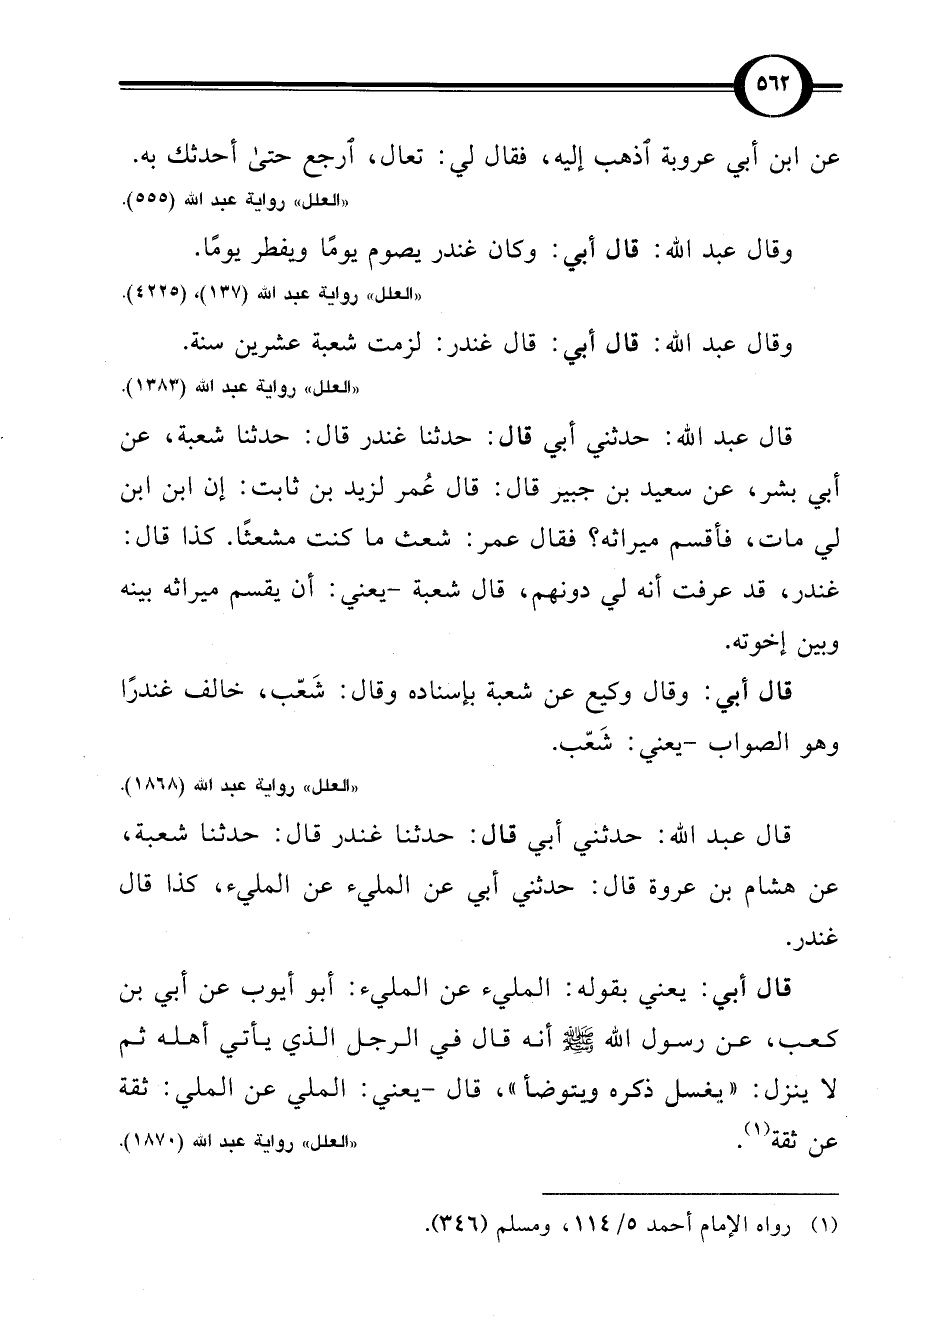 ٥٦٢
عن ابن أبي عروبة ٱذهب إليه، فقال لي: تعال، ٱرجع حتىٰ أحدثك به.
«العلل» رواية عبد الله (٥٥٥).
وقال عبد الله: قال أبي: وكان غندر يصوم يومًا ويفطر يومًا.
«العلل» رواية عبد الله (١٣٧)، (٤٢٢٥).
وقال عبد الله: قال أبي: قال غندر: لزمت شعبة عشرين سنة.
«العلل» رواية عبد الله (١٣٨٣).
قال عبد الله: حدثني أبي قال: حدثنا غندر قال: حدثنا شعبة، عن
أبي بشر، عن سعيد بن جبير قال: قال عُمر لزيد بن ثابت: إن ابن ابن
لي مات، فأقسم ميراثه؟ فقال عمر: شعث ما كنت مشعثًا. كذا قال:
غندر، قد عرفت أنه لي دونهم، قال شعبة -يعني: أن يقسم ميراثه بينه
وبين إخوته.
قال أبي: وقال وكيع عن شعبة بإسناده وقال: شَعّب، خالف غندرًا
وهو الصواب -يعني: شَعّب.
«العلل» رواية عبد الله (١٨٦٨).
قال عبد الله: حدثني أبي قال: حدثنا غندر قال: حدثنا شعبة،
عن هشام بن عروة قال: حدثني أبي عن المليء عن المليء، كذا قال
غندر.
قال أبي: يعني بقوله: المليء عن المليء: أبو أيوب عن أبي بن
كعب، عن رسول الله ﷺ أنه قال في الرجل الذي يأتي أهله ثم
لا ينزل: «يغسل ذكره ويتوضأ»، قال -يعني: الملي عن الملي: ثقة
عن ثقة(١). «العلل» رواية عبد الله (١٨٧٠).
(١) رواه الإمام أحمد ٥/ ١١٤، ومسلم (٣٤٦).